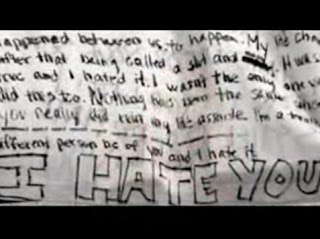 happened between us, to happen. My life chan
after that being called a slut and It was
true and I hated it. I wasn't the only one
did this to. Nothing has been the same
you really did ruin my life asshole. I'm a
different person bc of you and I hate it
I HATE YOU